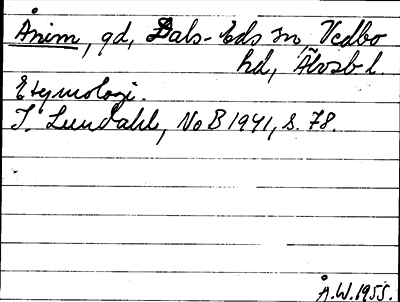 Ånim, gd, Dals-Eds sn, Vedbo
hd, Älvsb l.
Etymologi.
I. Lundahl, NoB 1941, s. 78.
Å.W. 1955.